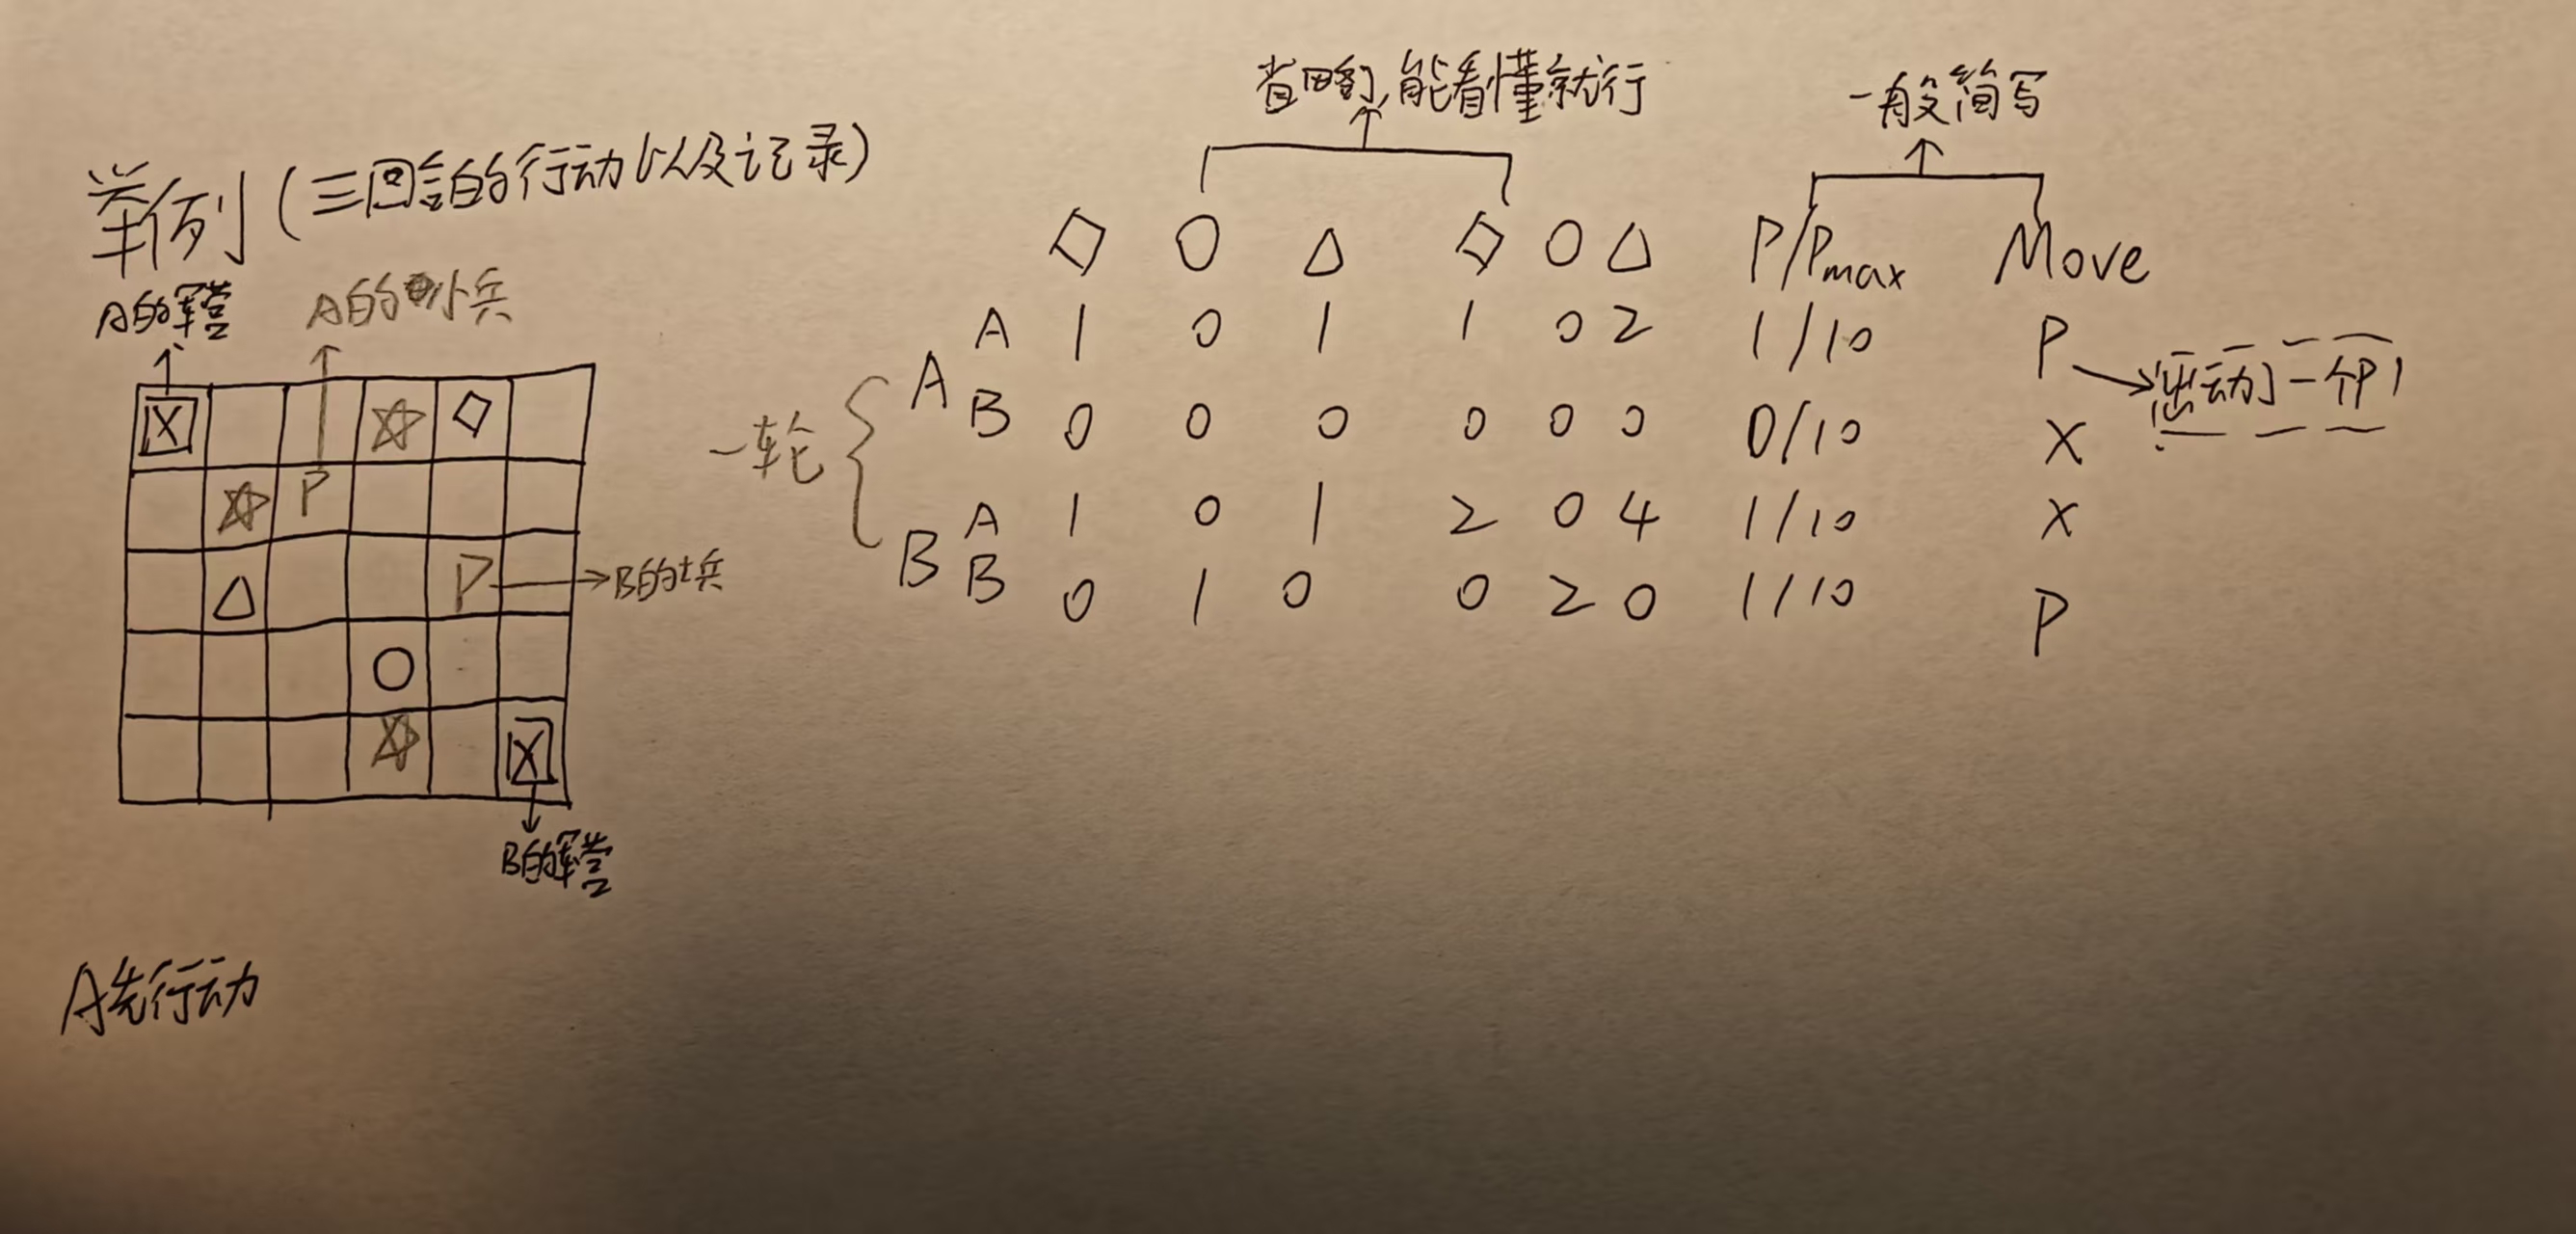 省略,能看懂就行
一般简写
举例(三回合的行动以及记录)
◇ ○ △ ◇ ○ △ P/Pmax Move
A的军营
A的小兵
A 1 0 1 1 0 2 1/10 P
A
运动了一个P
一轮
B 0 0 0 0 0 0 0/10 X
A 1 0 1 2 0 4 1/10 X
B
B 0 1 0 0 2 0 1/10 P
X ☆ ◇
☆ P
△ P
B的士兵
○
☆ X
B的军营
A先行动